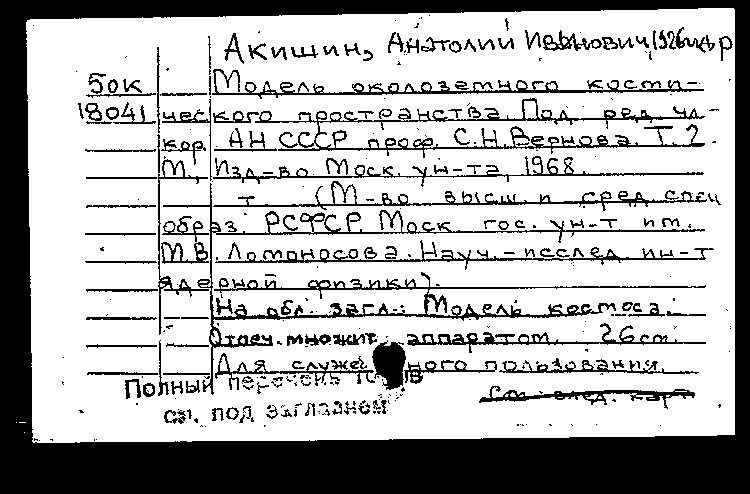 Акишин, Анатолий Иванович, 1926
50к Модель околоземного косми-
18041 ческого пространства. Под ред. чл-
кор. АН СССР проф. С.Н.Вернова. Т. 2.
М., Изд-во Моск. ун-та, 1968.
т. (М-во высш. и сред. спец
образ. РСФСР. Моск. гос. ун-т им.
М.В. Ломоносова. Науч.-исслед. ин-т
ядерной физики).
На обл. загл.: Модель космоса.
Отпеч. множит. аппаратом. 26см.
Для служеб ного пользования.
Полный перечень
см. под заглавием
См. след. карт